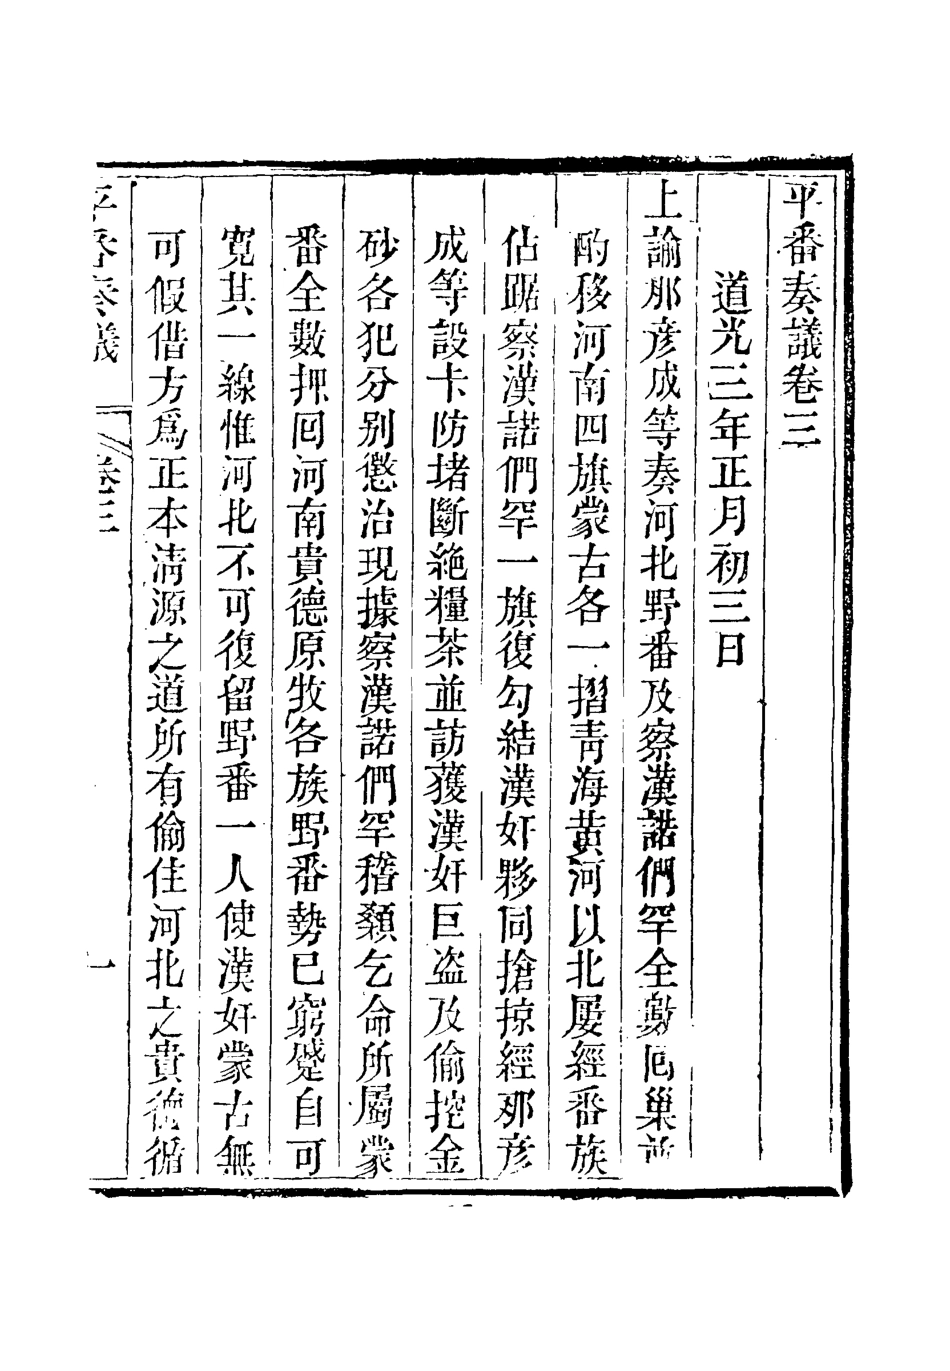 平番奏議卷三
道光三年正月初三日
上諭那彥成等奏河北野番及察漢諾們罕全數回巢並
酌移河南四旗蒙古各一摺青海黃河以北屢經番族
佔踞察漢諾們罕一旗復勾結漢奸夥同搶掠經那彥
成等設卡防堵斷絶糧茶並訪獲漢奸巨盜及偷挖金
砂各犯分别懲治現據察漢諾們罕稽顙乞命所屬蒙
番全數押回河南貴德原牧各族野番勢已窮蹙自可
寬其一線惟河北不可復留野番一人使漢奸蒙古無
可假借方爲正本清源之道所有偷住河北之貴德循
平番奏議 卷三 一